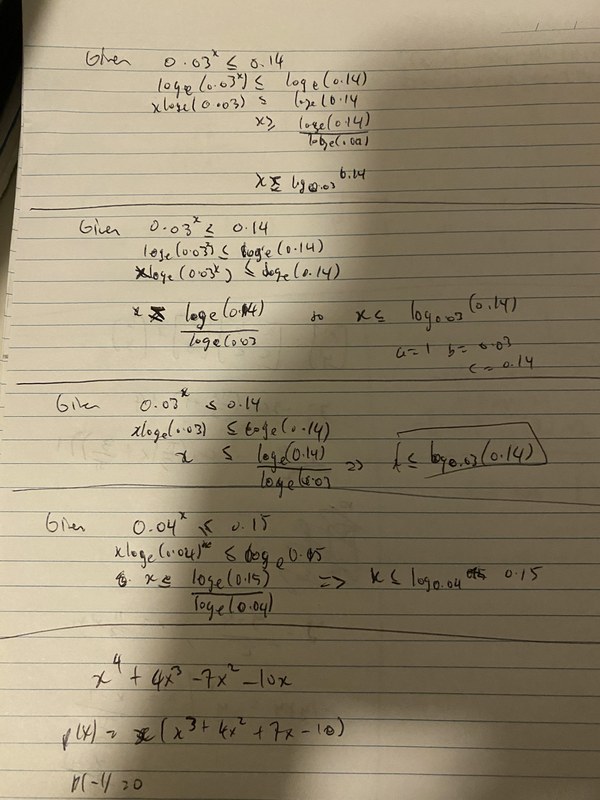 Given 0.03^x ≤ 0.14
log_e(0.03^x) ≤ log_e(0.14)
x log_e(0.03) ≤ log_e(0.14
x ≥ log_e(0.14)
x ≤ log_0.03 0.14
Given 0.03^x ≤ 0.14
log_e(0.03^x) ≤ log_e(0.14)
x log_e(0.03^x) ≤ log_e(0.14)
x log_e(0.14) / log_e(0.03 so x ≤ log_0.03 (0.14)
a=1 b=0.03
c=0.14
Given 0.03^x ≤ 0.14
x log_e(0.03) ≤ log_e(0.14)
x ≤ log_e(0.14) / log_e(0.03 => x ≤ log_0.03 (0.14)
Given 0.04^x ≤ 0.15
x log_e(0.04) ≤ log_e 0.15
x ≤ log_e(0.15) / log_e(0.04) => x ≤ log_0.04 0.15
x^4 + 4x^3 - 7x^2 - 10x
p(x) = x(x^3 + 4x^2 + 7x - 10)
p(-1) = 0